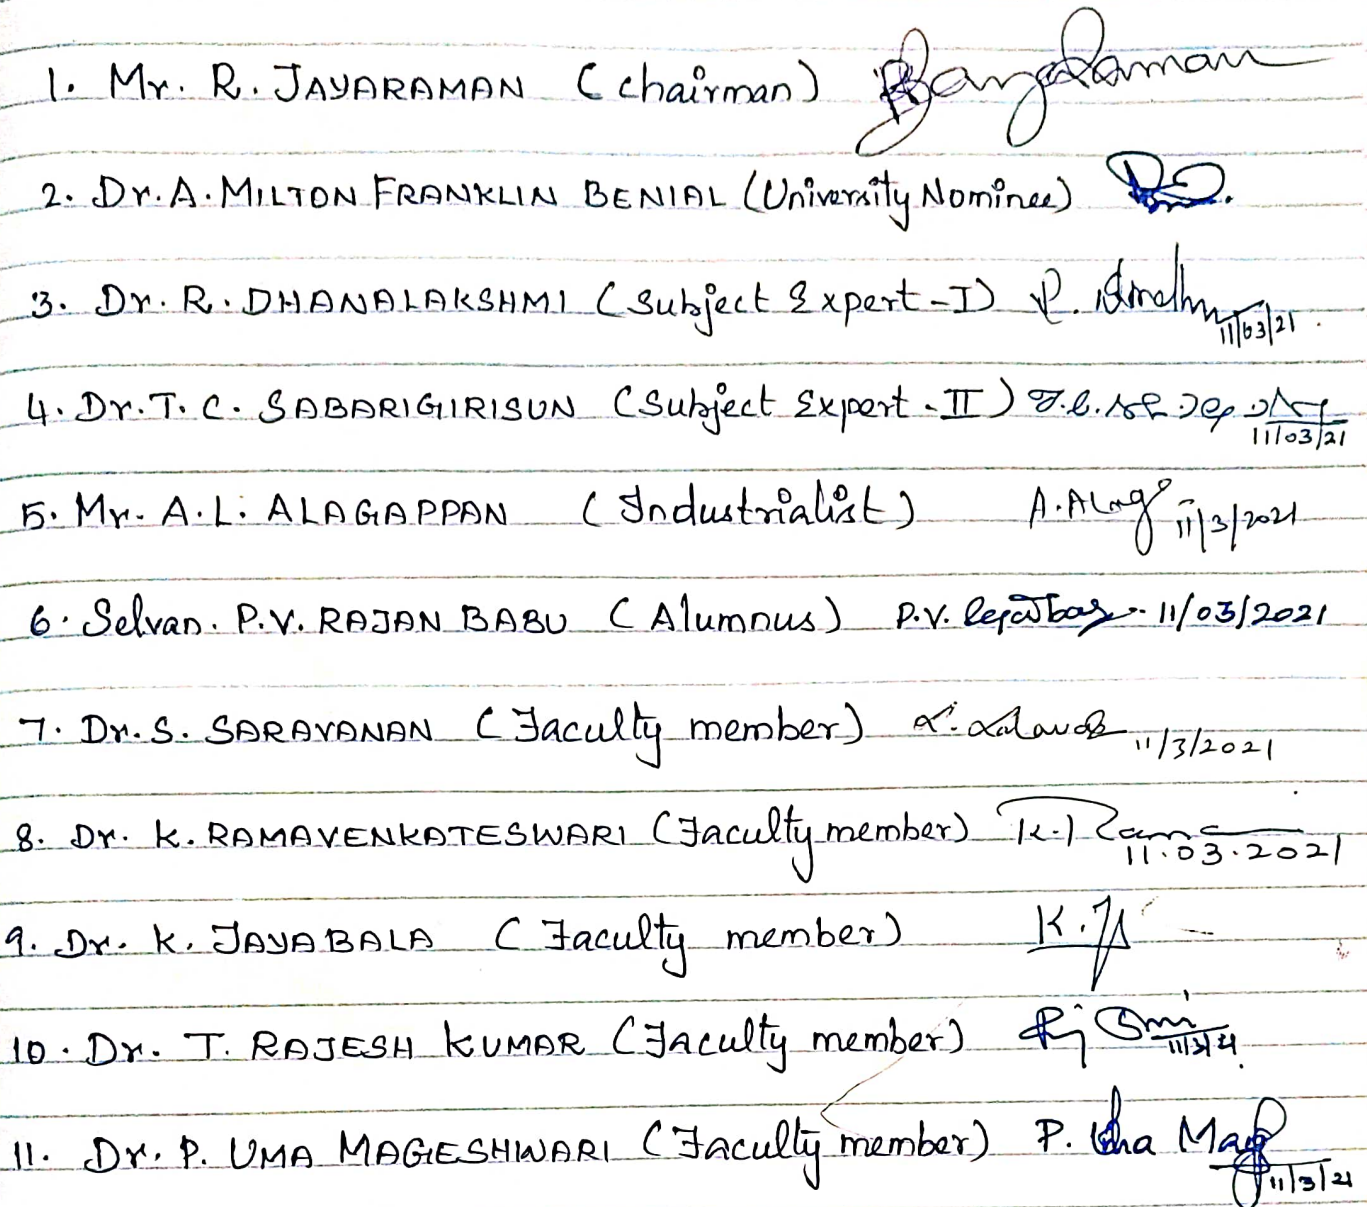 1. Mr. R. JAYARAMAN (Chairman)
2. Dr. A. MILTON FRANKLIN BENIAL (University Nominee)
3. Dr. R. DHANALAKSHMI (Subject Expert-I) 11/03/21
4. Dr. T. C. SABARIGIRISUN (Subject Expert-II) 11/03/21
5. Mr. A.L. ALAGAPPAN (Industrialist) 11/3/2021
6. Selvan. P.V. RAJAN BABU (Alumnus) P.V. 11/03/2021
7. Dr. S. SARAVANAN (Faculty member) 11/3/2021
8. Dr. K. RAMAVENKATESWARI (Faculty member) 11.03.2021
9. Dr. K. JAYABALA (Faculty member)
10. Dr. T. RAJESH KUMAR (Faculty member)
11. Dr. P. UMA MAGESHWARI (Faculty member) P. Uma 11/3/21